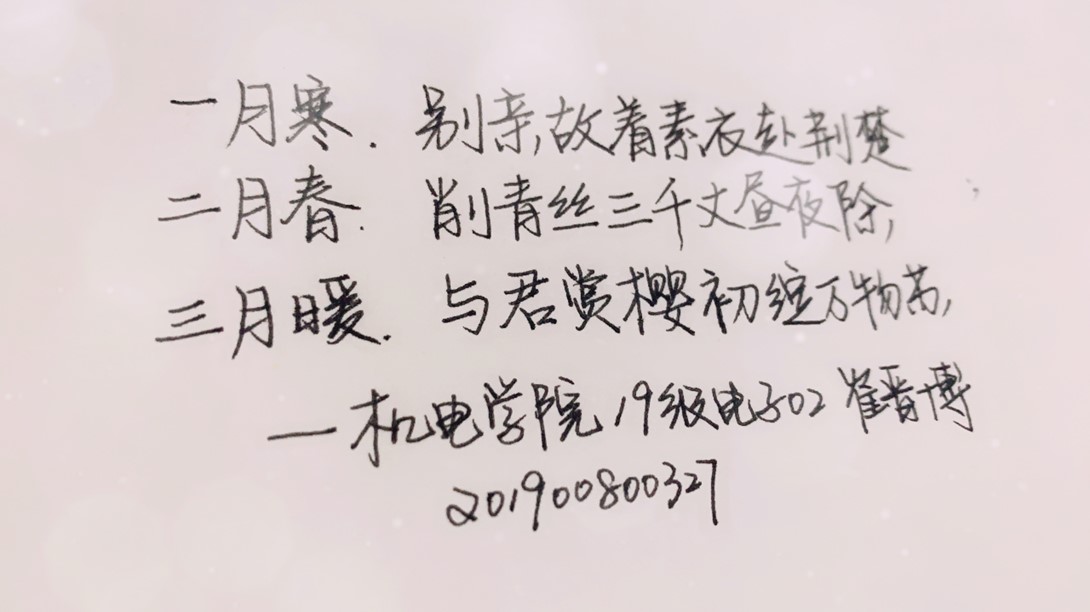 一月寒.别亲故着素衣赴荆楚
二月春.削青丝三千丈昼夜除,
三月暖.与君赏樱初绽万物苏,
—机电学院19级电子02崔晋博
201900800327